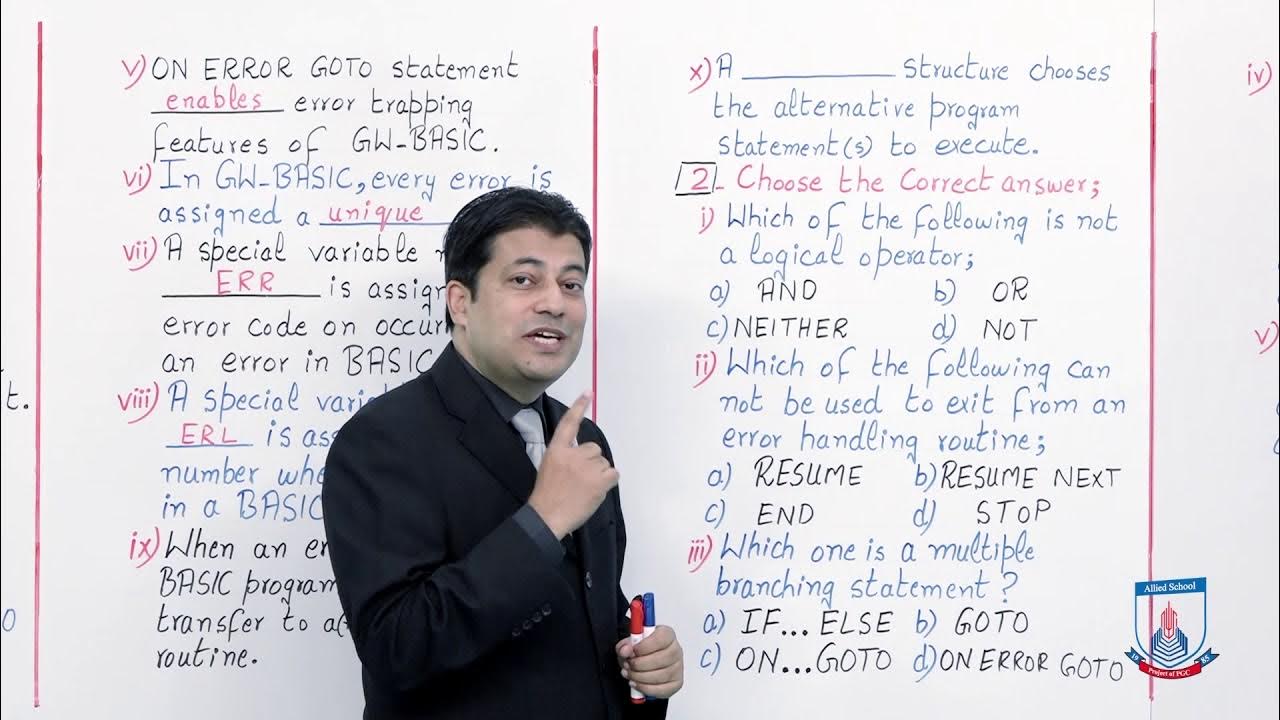 t.
v) ON ERROR GOTO statement
enables error trapping
features of GW-BASIC.
vi) In GW-BASIC, every error is
assigned a unique
vii) A special variable
ERR is assig
error code on occur
an error in BASIC
viii) A special vari
ERL is ass
number whe
in a BASIC
ix) When an er
BASIC program
transfer to a(
routine.
x) A ________ structure chooses
the alternative program
statement(s) to execute.
2- Choose the Correct answer;
i) Which of the following is not
a logical operator;
a) AND b) OR
c) NEITHER d) NOT
ii) Which of the following can
not be used to exit from an
error handling routine;
a) RESUME b) RESUME NEXT
c) END d) STOP
iii) Which one is a multiple
branching statement?
a) IF... ELSE b) GOTO
c) ON...GOTO d) ON ERROR GOTO
iv)
v)
Allied School
19 85
Project of PGC